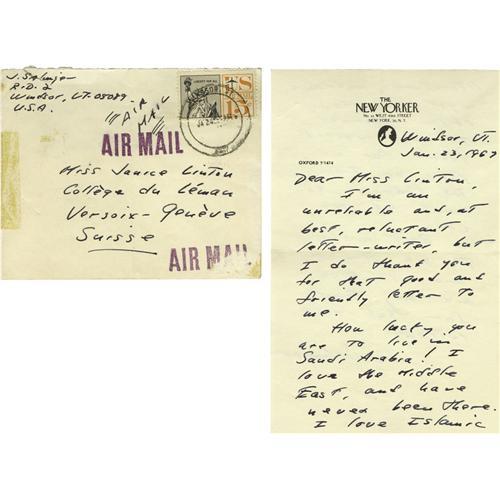 J. Salinger
R.D. 2
Windsor, VT. 05089
U.S.A.
AIR
MAIL
U.S.
15¢
AIR MAIL
Miss Janice Linton
Collège du Léman
Versoix-Genève
Suisse
AIR MAIL
THE
NEW YORKER
No. 25 WEST 43RD STREET
NEW YORK, 36, N.Y.
OXFORD 5-1414
Windsor, Vt.
Jan. 23, 1967
Dear Miss Linton,
I'm an
unreliable and, at
best, reluctant
letter-writer, but
I do thank you
for that good and
friendly letter to
me.
How lucky you
are to live in
Saudi Arabia! I
love the Middle
East, and have
never been there.
I love Islamic